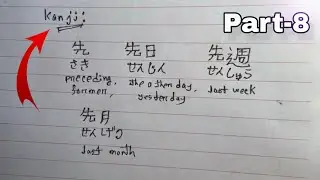 Kanji:
Part-8
先 先日 先週
さき せんじん せんしゅう
preceding, the other day, last week
former, yesterday
先月
last month